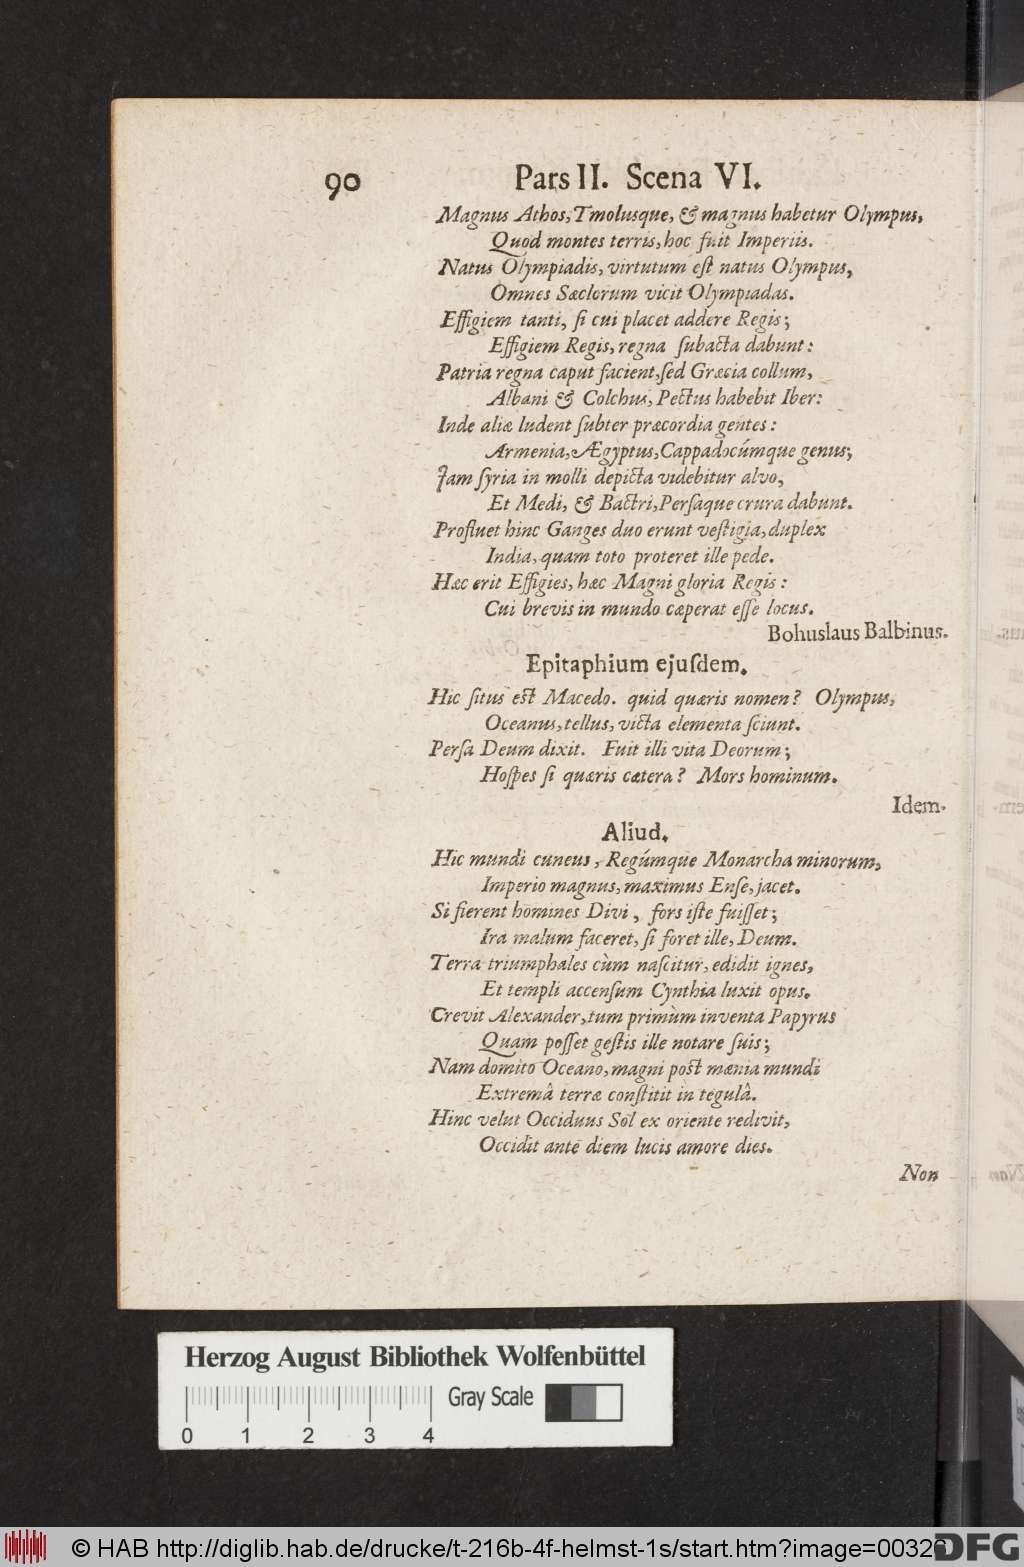 90 Pars II. Scena VI.
Magnus Athos, Tmolusque, & magnus habetur Olympus,
Quod montes terris, hoc fuit Imperiis.
Natus Olympiadis, virtutum eſt natus Olympus,
Omnes Sæclorum vicit Olympiadas.
Effigiem tanti, ſi cui placet addere Regis;
Effigiem Regis, regna ſubacta dabunt:
Patria regna caput facient, ſed Græcia collum,
Albani & Colchus, Pectus habebit Iber:
Inde aliæ ludent ſubter præcordia gentes:
Armenia, Ægyptus, Cappadocúmque genus;
Jam ſyria in molli depicta videbitur alvo,
Et Medi, & Bactri, Perſaque crura dabunt.
Profluet hinc Ganges duo erunt veſtigia, duplex
India, quam toto proteret ille pede.
Hæc erit Effigies, hæc Magni gloria Regis:
Cui brevis in mundo cæperat eſſe locus.
Bohuslaus Balbinus.
Epitaphium ejuſdem.
Hic ſitus eſt Macedo. quid quæris nomen? Olympus,
Oceanus, tellus, victa elementa ſciunt.
Perſa Deum dixit. Fuit illi vita Deorum;
Hoſpes ſi quæris cætera? Mors hominum.
Idem.
Aliud.
Hic mundi cuneus, Regúmque Monarcha minorum,
Imperio magnus, maximus Enſe, jacet.
Si fierent homines Divi, fors iſte fuiſſet;
Ira malum faceret, ſi foret ille, Deum.
Terra triumphales cùm naſcitur, edidit ignes,
Et templi accenſum Cynthia luxit opus.
Crevit Alexander, tum primùm inventa Papyrus
Quam poſſet geſtis ille notare ſuis;
Nam domito Oceano, magni poſt mænia mundi
Extremâ terræ conſtitit in tegulâ.
Hinc velut Occiduus Sol ex oriente redivit,
Occidit ante diem lucis amore dies.
Non
Herzog August Bibliothek Wolfenbüttel
Gray Scale
0 1 2 3 4
© HAB http://diglib.hab.de/drucke/t-216b-4f-helmst-1s/start.htm?image=00320
DFG